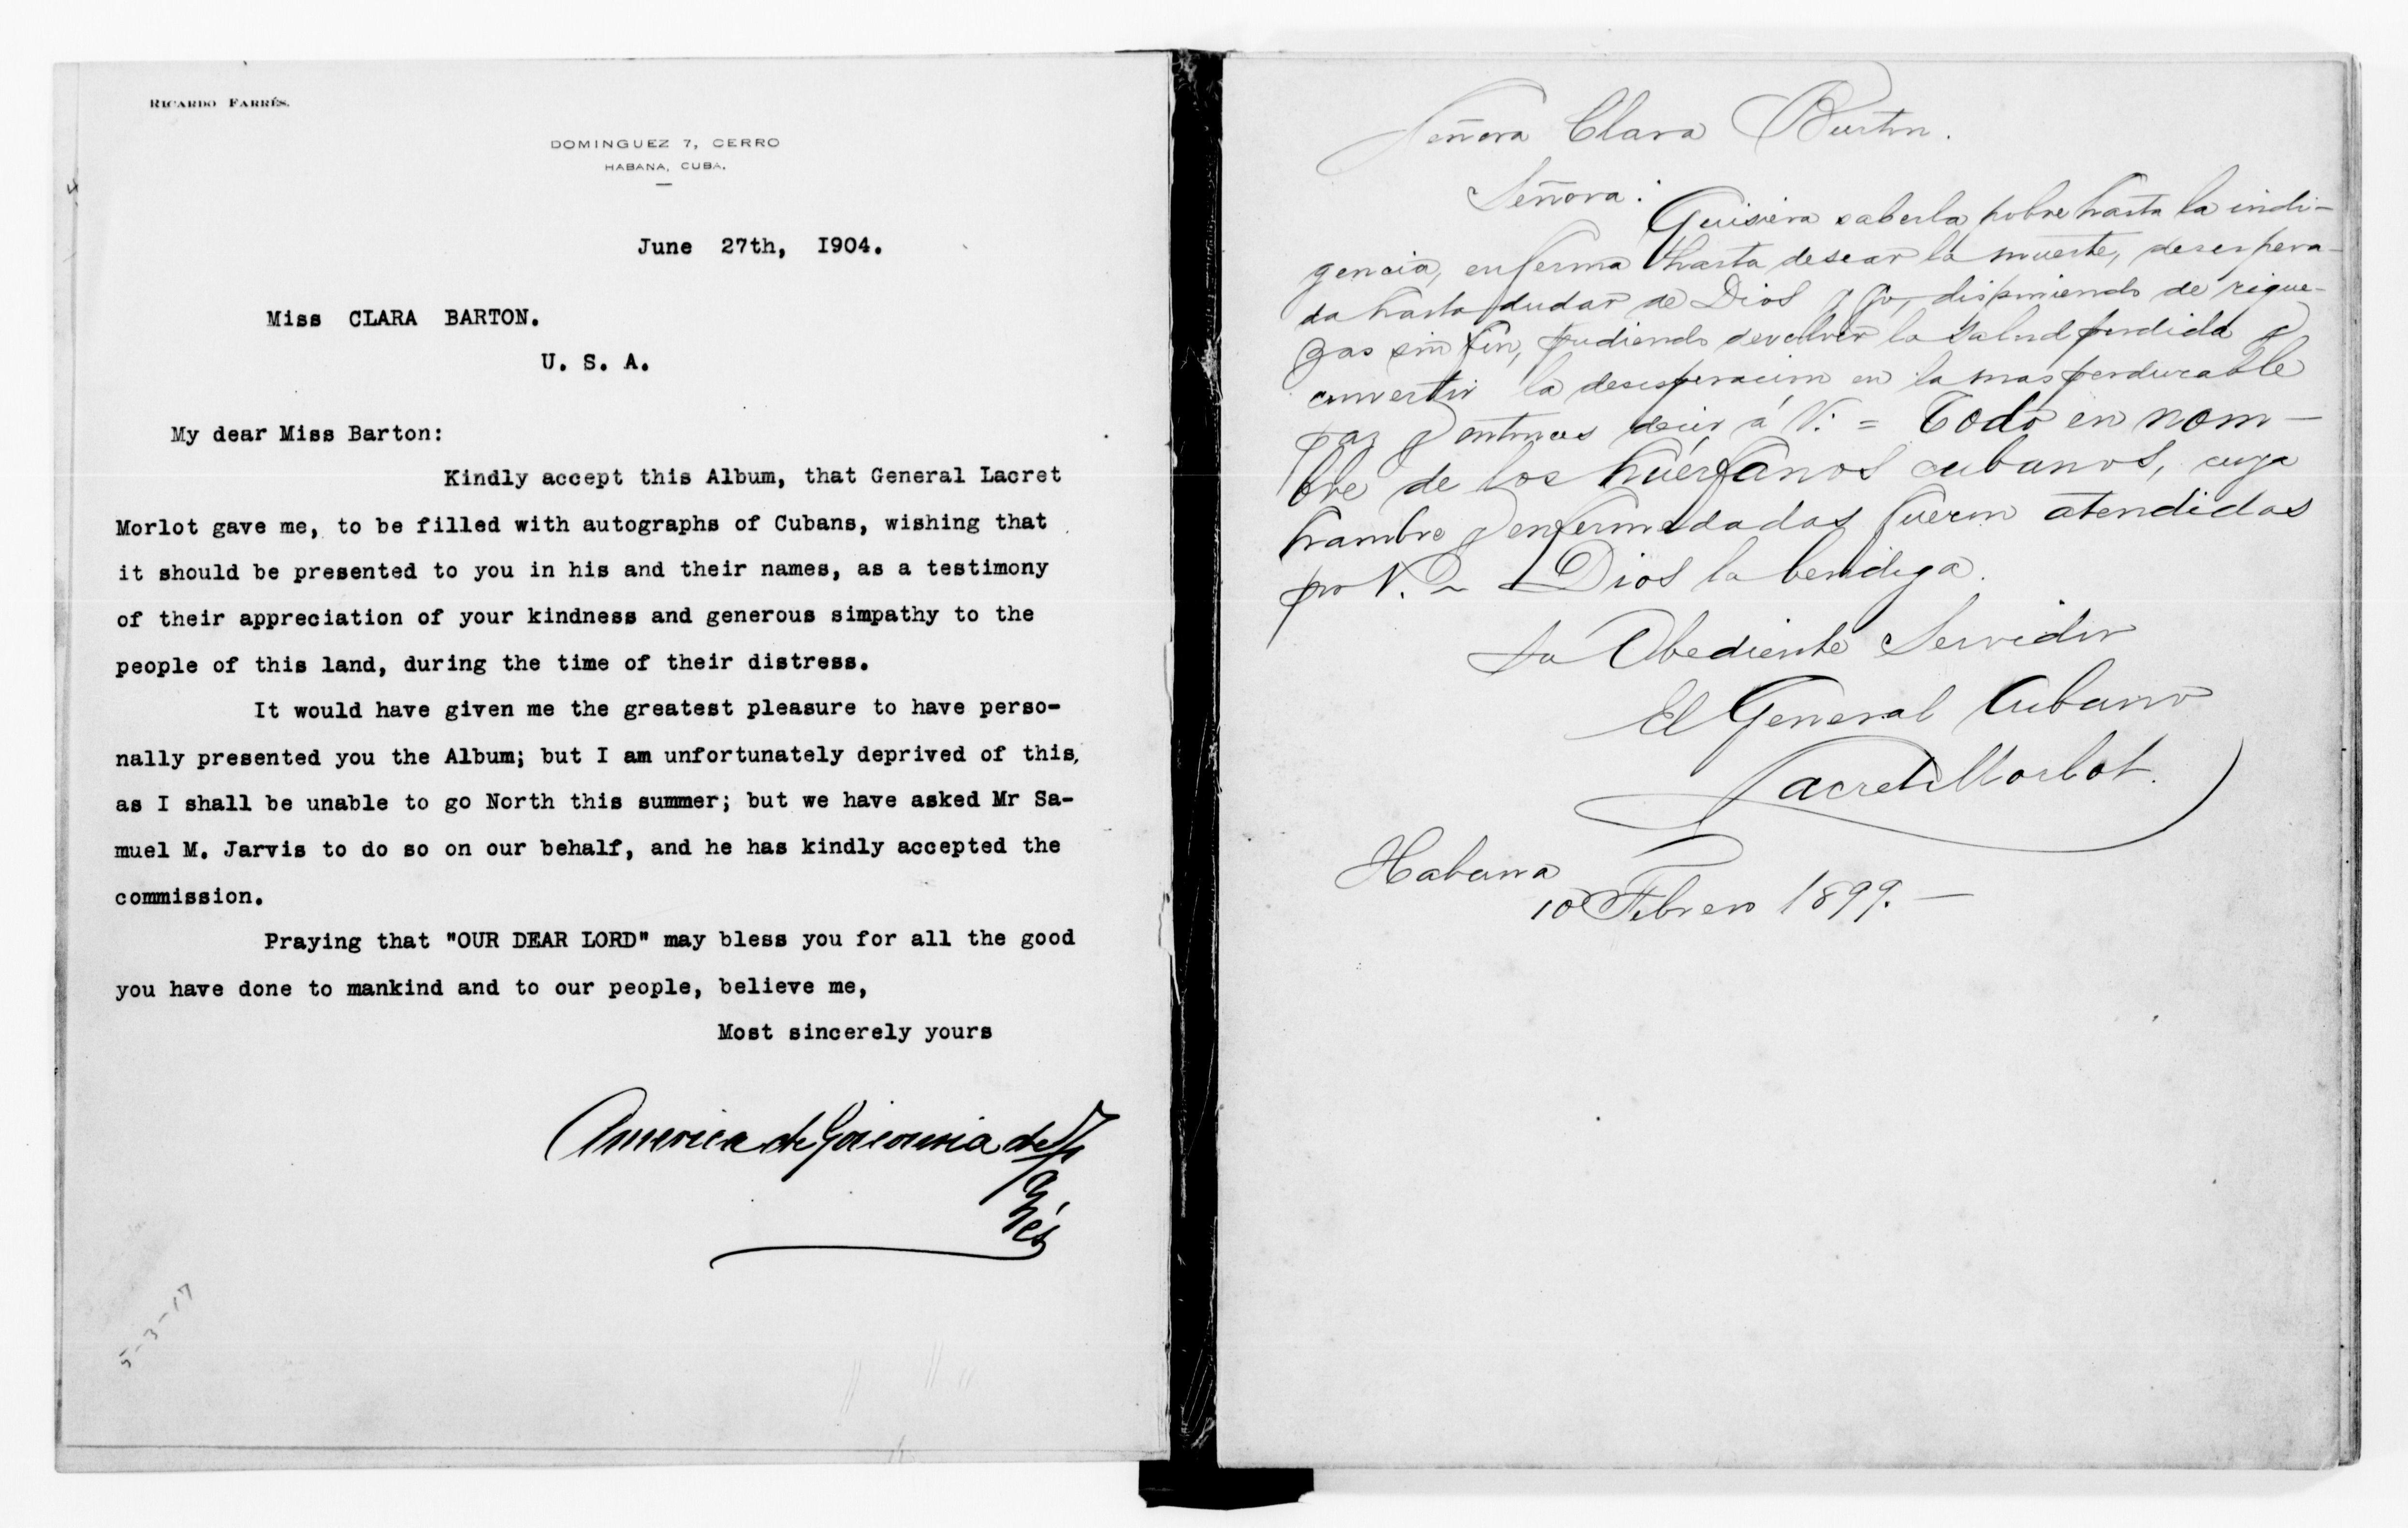 RICARDO FARRÉS.
DOMINGUEZ 7, CERRO
HABANA, CUBA.
June 27th, I904.
Miss CLARA BARTON.
U. S. A.
My dear Miss Barton:
Kindly accept this Album, that General Lacret
Morlot gave me, to be filled with autographs of Cubans, wishing that
it should be presented to you in his and their names, as a testimony
of their appreciation of your kindness and generous simpathy to the
people of this land, during the time of their distress.
It would have given me the greatest pleasure to have perso-
nally presented you the Album; but I am unfortunately deprived of this,
as I shall be unable to go North this summer; but we have asked Mr Sa-
muel M. Jarvis to do so on our behalf, and he has kindly accepted the
commission.
Praying that "OUR DEAR LORD" may bless you for all the good
you have done to mankind and to our people, believe me,
Most sincerely yours
America de Goicouria de
5-3-17
Señora Clara Burton.
Señora:
Quisiera saberla pobre hasta la indi-
gencia, enferma hasta desear la muerte, desespera-
da hasta dudar de Dios y yo, disponiendo de rique-
zas sin fin, pudiendo devolver la salud perdida y
convertir la desesperacion en la mas perdurable
paz y entonces decir á V: = Todo en nom-
bre de los huérfanos cubanos, cuya
hambre y enfermedades fueron atendidas
por V. Dios la bendiga.
Su Obediente Servidor
El General Cubano
Lacret Morlot.
Habana
10 Febrero 1899.-